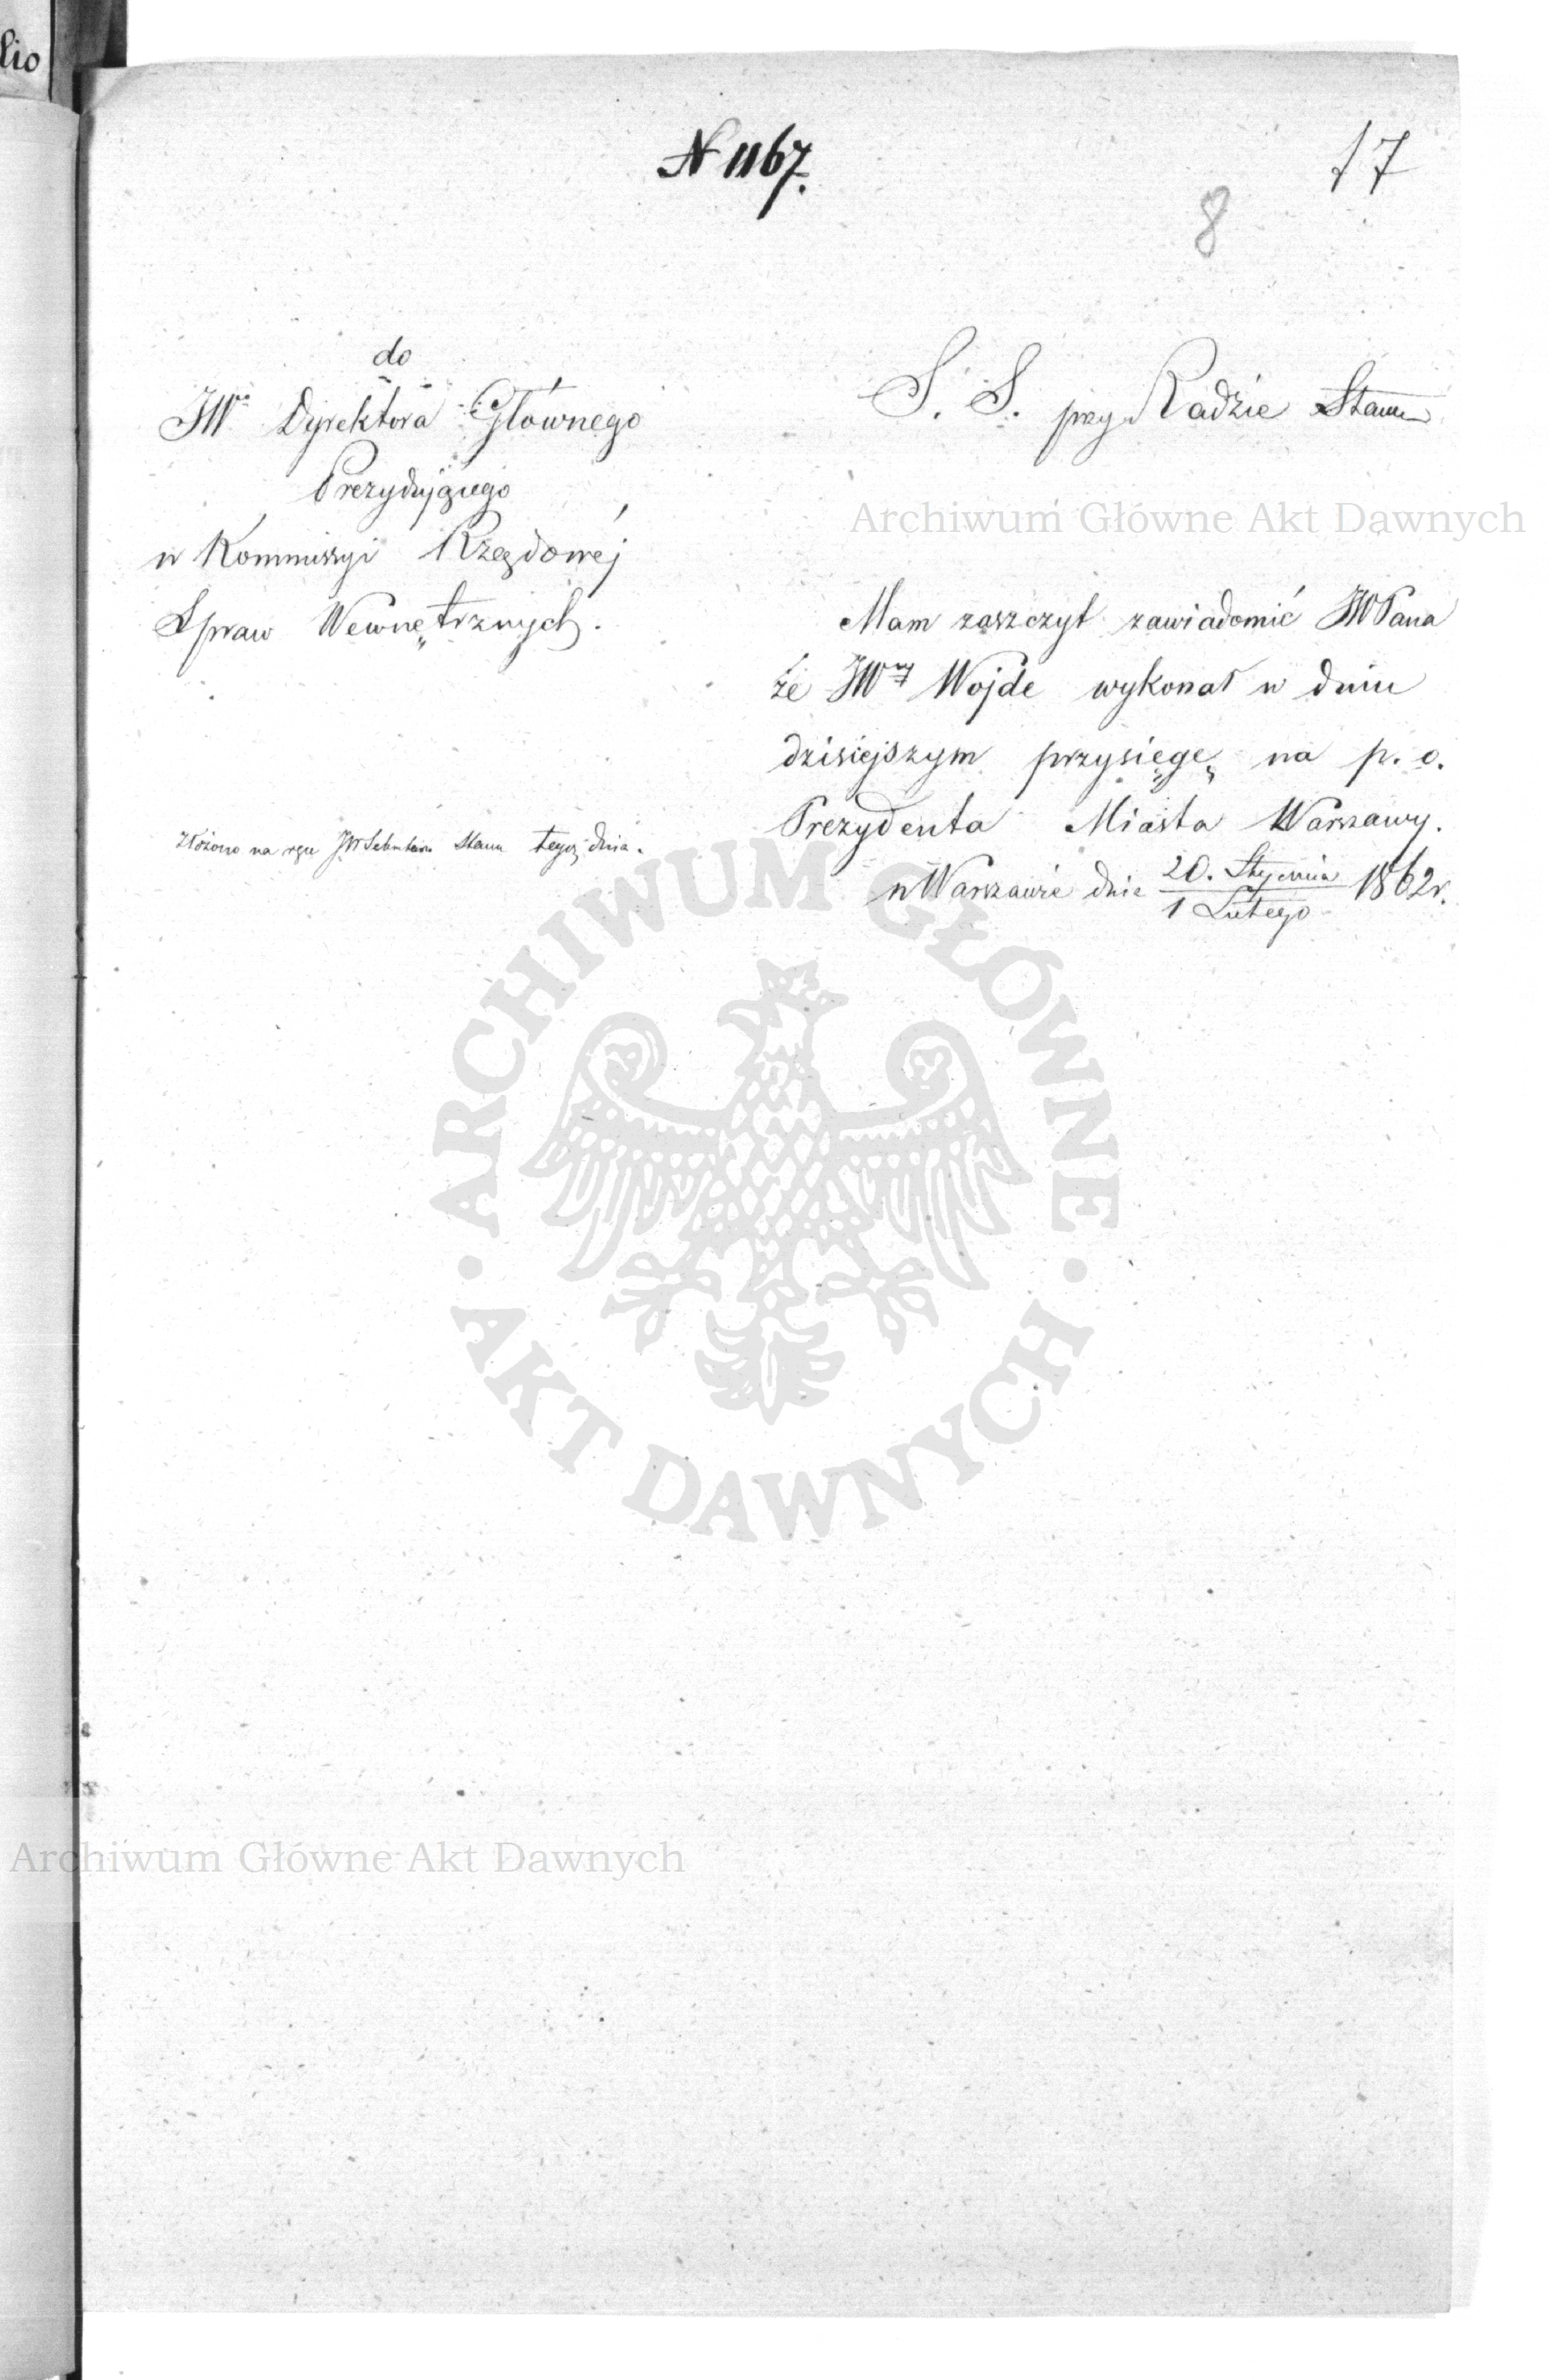 lio
N 1167.
17
8
do
JWo Dyrektora Głównego
Prezydującego
w Kommissyi Rządowéj
Spraw Wewnętrznych.
S. S. przy Radzie Stanu
Archiwum Główne Akt Dawnych
Mam zaszczyt zawiadomić JWPana
że JWny Wojde wykonał w dniu
dzisiejszym przysięgę na p. o.
Prezydenta Miasta Warszawy.
w Warszawie dnia 20. Stycznia / 1 Lutego 1862 r.
Złożono na ręce JW Sekretarza Stanu tegoż dnia.
ARCHIWUM GŁÓWNE
AKT DAWNYCH
Archiwum Główne Akt Dawnych